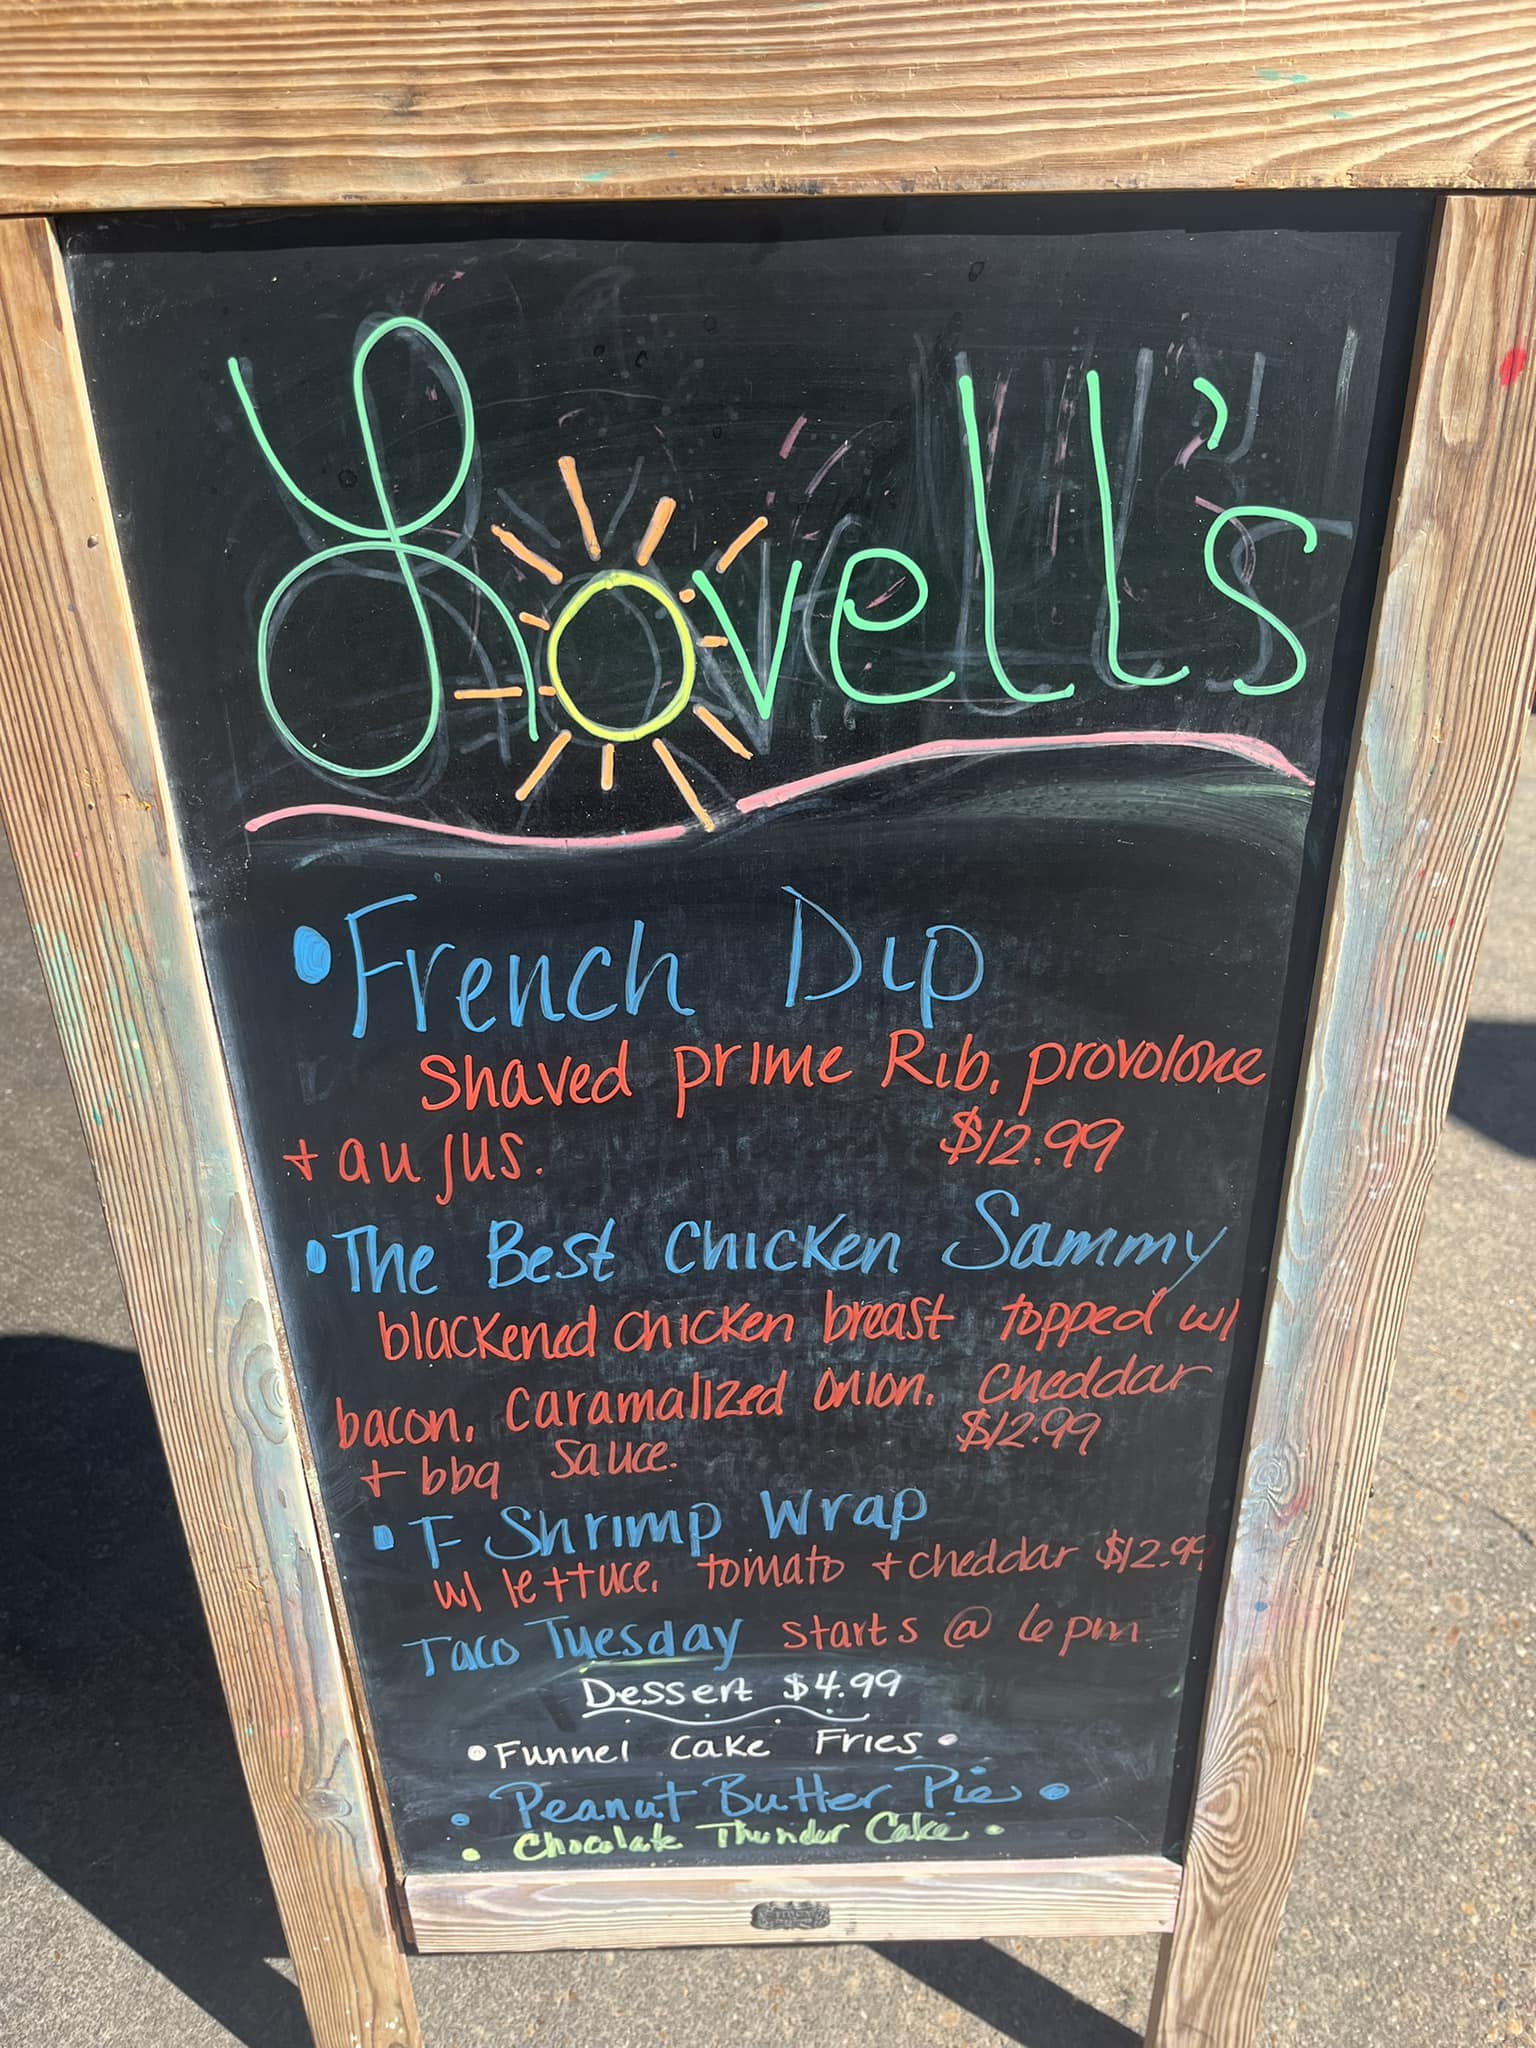 Lovell's
• French Dip
Shaved prime Rib, provolone
+ au jus. $12.99
• The Best Chicken Sammy
blackened chicken breast topped w/
bacon, caramalized onion, cheddar
+ bbq sauce. $12.99
• F Shrimp Wrap
w/ lettuce, tomato + cheddar $12.99
Taco Tuesday starts @ 6pm
Dessert $4.99
• Funnel Cake Fries •
• Peanut Butter Pie •
• Chocolate Thunder Cake •